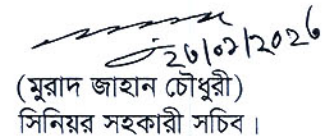 ২৬/০২/২০২৬
(মুরাদ জাহান চৌধুরী)
সিনিয়র সহকারী সচিব।